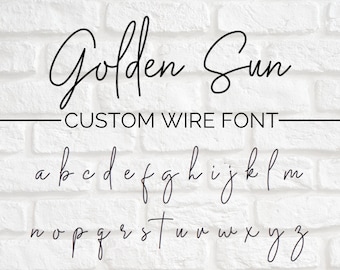 Golden Sun
CUSTOM WIRE FONT
a b c d e f g h i j k l m
n o p q r s t u v w x y z